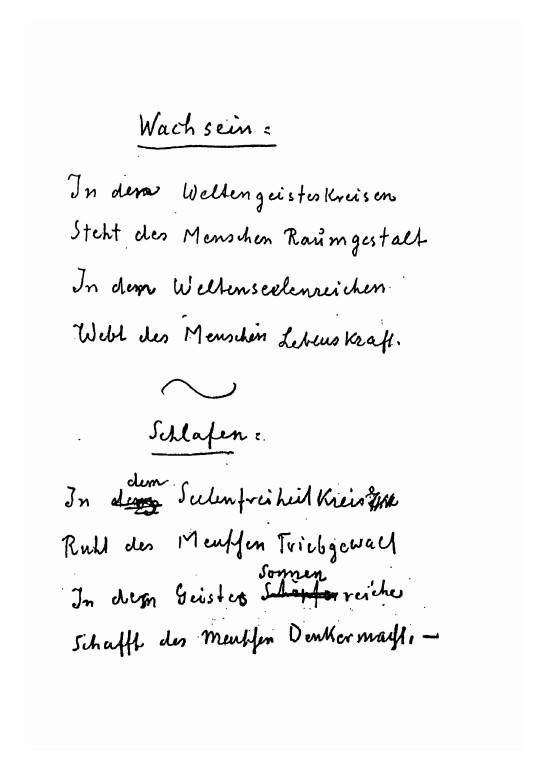 Wachsein:
In den Weltengeisteskreisen
Steht des Menschen Raumgestalt
In den Weltenseelenreichen
Webt des Menschen Lebenskraft.
Schlafen:
In dem Seelenfreiheitkreis
Ruht des Menschen Triebgewalt
In dem Geistes Sonnenreiche
Schafft des Menschen Denkermacht. –